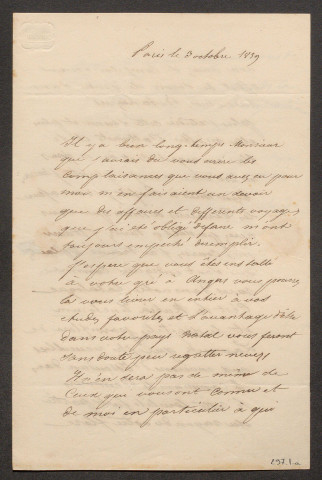 Paris le 3 octobre 1839
Il y a bien long-temps Monsieur
que j'aurais du vous ecrire les
complaisances que vous avez eu pour
moi m'en faisaient un devoir
que des affaires et differents voyages
que j'ai été obligé defaire m'ont
toujours empeché deremplir.
J'espere que vous êtes installé
à votre gré à Angers vous pouvez
la vous livrer en entier à vos
etudes favorites et l'avantage d'être
dans votre pays natal vous feront
sans doute peu regretter
Il n'en sera pas de même de
ceux qui vous ont connu et
de moi en particulier à qui
297.1a